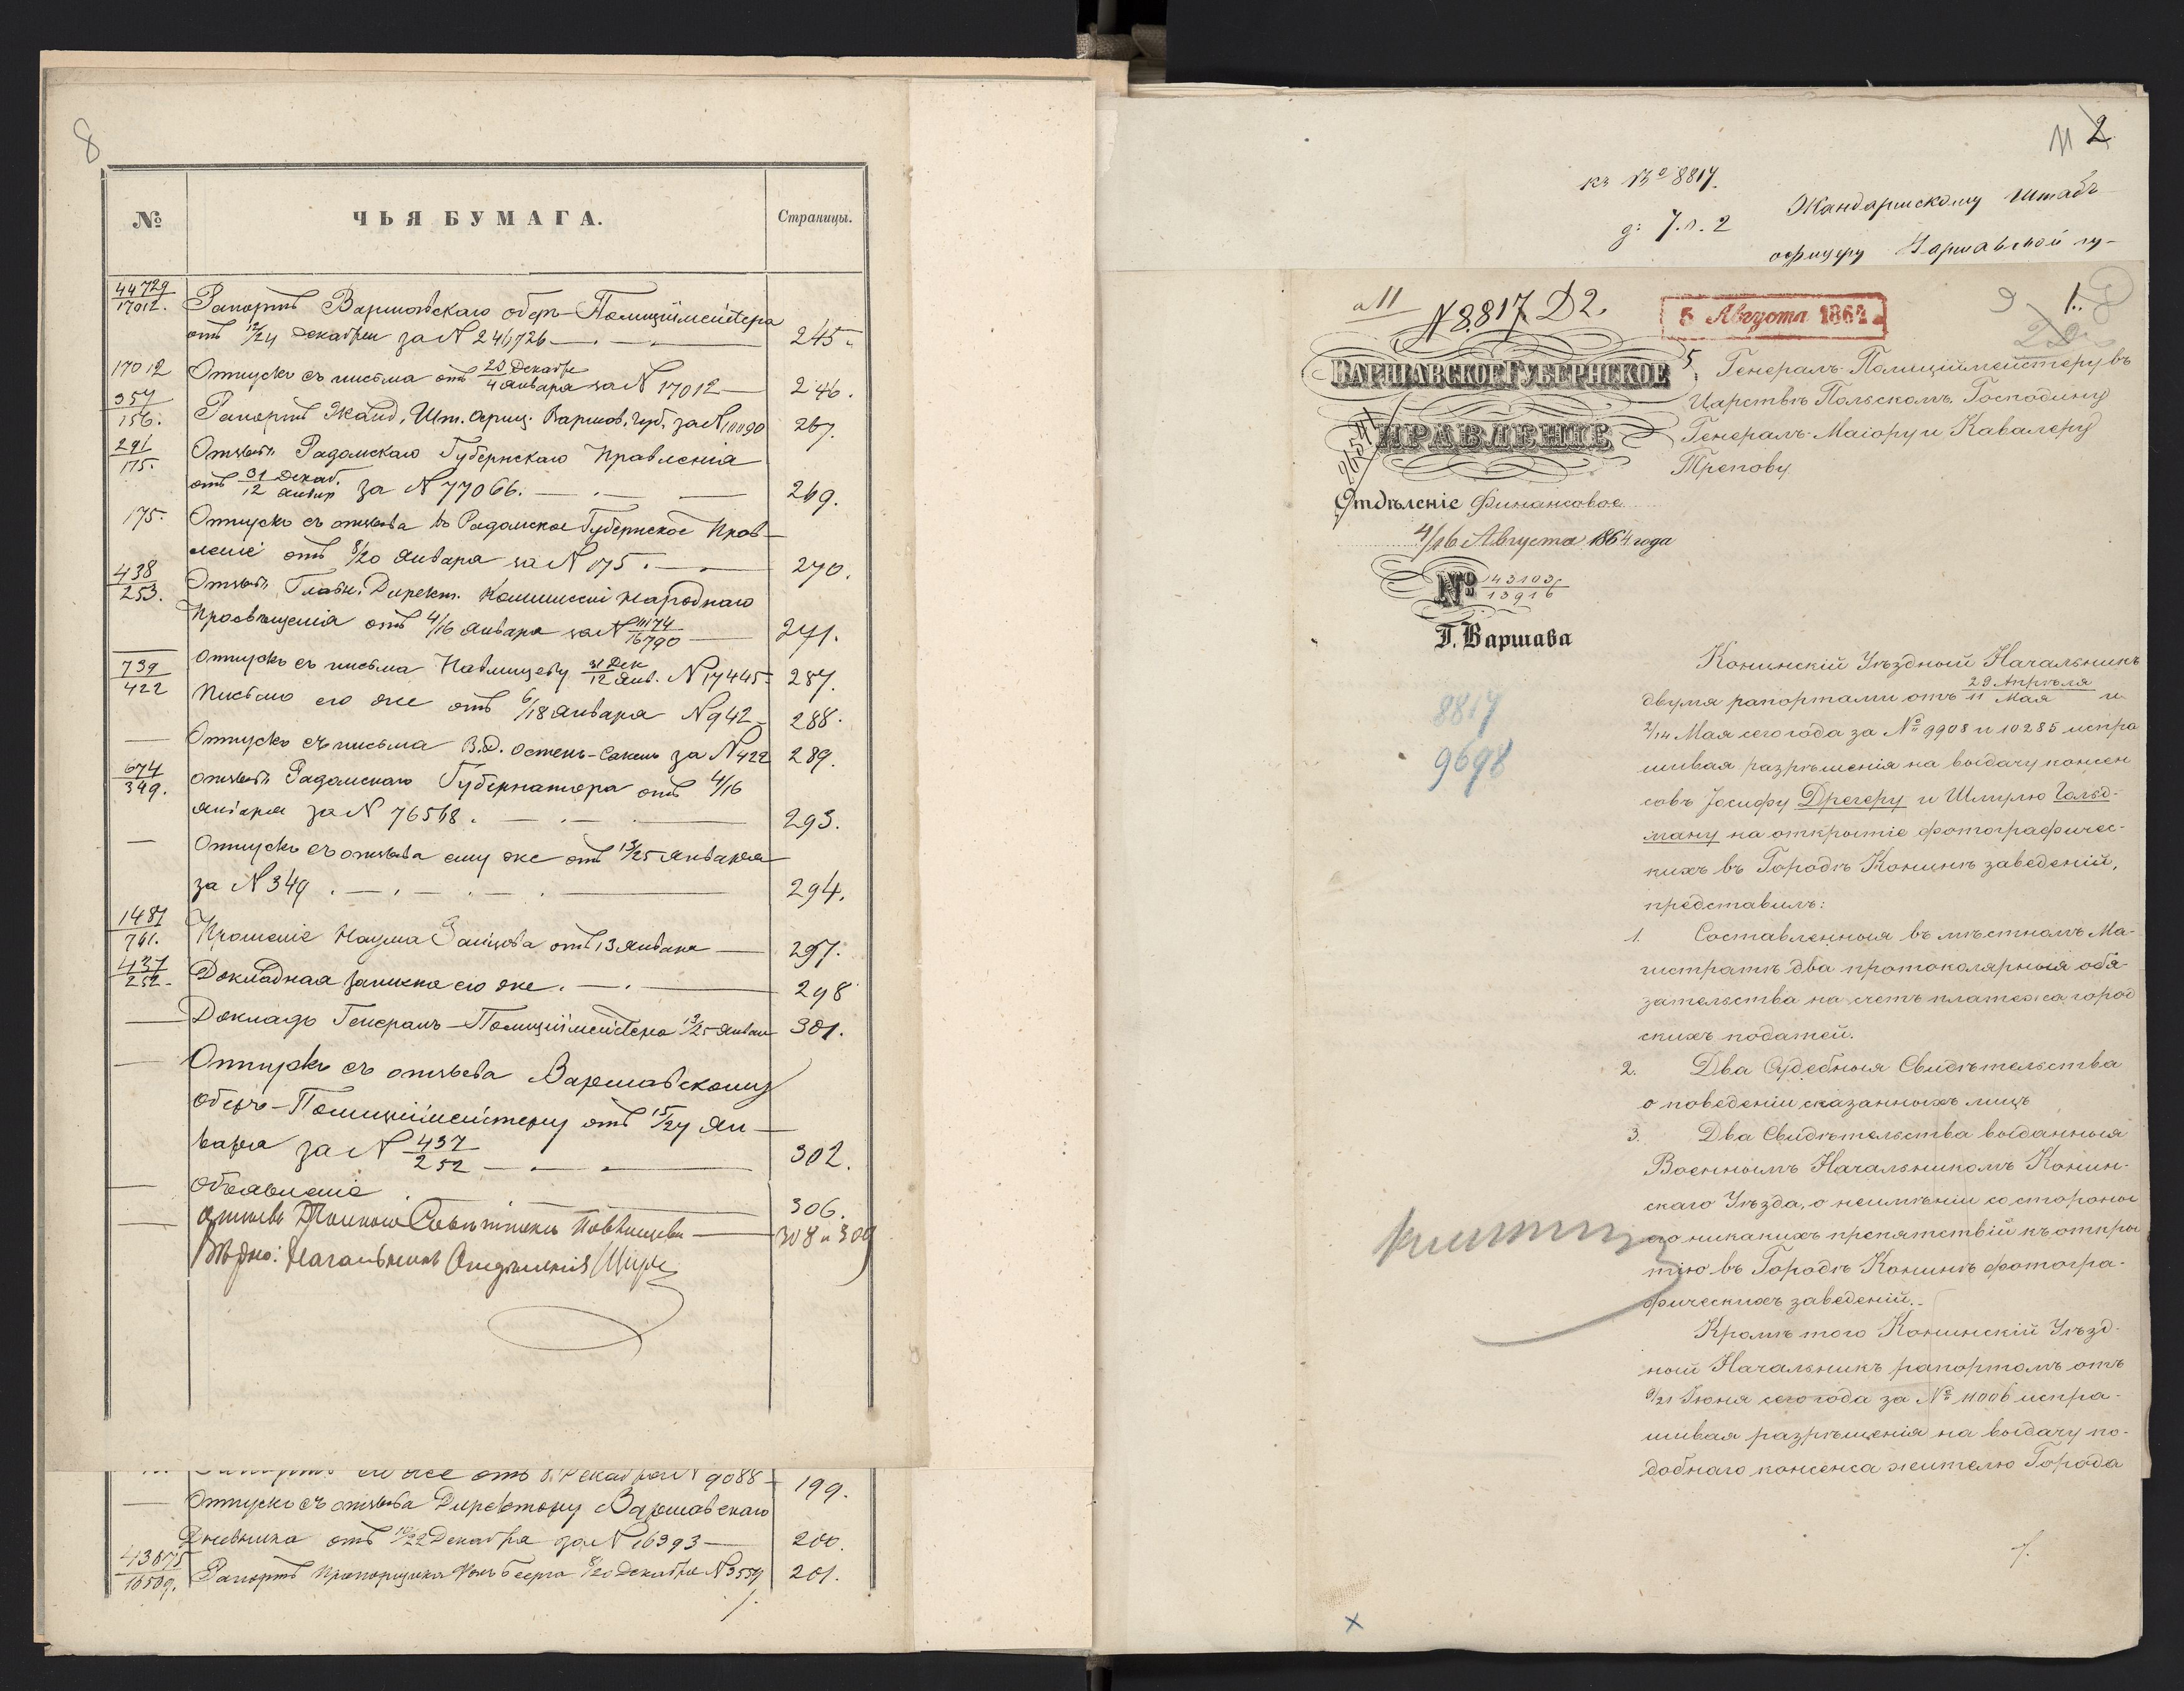 8
№ ЧЬЯ БУМАГА. Страницы.
44729/17012. Рапортъ Варшавскаго оберъ-Полиціймейстера
отъ 12/24 декабря за N 246726 245.
17012 Отпускъ съ письма отъ 23 Декабря/4 Января за N 17012 246.
357/156. Рапортъ Жанд. Шт. офиц. Варшов. Губ. за N 10090 267.
291/175. Отзывъ Радомскаго Губернскаго Правленія
отъ 31 Декаб./12 Январ за N 77066. 269.
175. Отпускъ съ отзыва въ Радомское Губернское Прав-
леніе отъ 8/20 Января за N 175. 270.
438/253. Отзывъ Главн. Директ. Коммиссіи Народнаго
Просвѣщенія отъ 4/16 Января за N /16790 271.
Отпускъ съ письма Павлищеву 31 Дек/12 Янв. N 17445 287.
739/422 Письмо его же отъ 6/18 Января N 942 288.
Отпускъ съ письма В.Д. Остенъ-Сакенъ за N 422 289.
674/349. Отзывъ Радомскаго Губернатора отъ 4/16
Января за N 76568. 293.
Отпускъ съ отзыва ему же отъ 13/25 Января
за N 349. 294.
1487/761. Прошеніе Наума Зайцова отъ 13 Января 297.
437/252. Докладная записка его же. 298
Докладъ Генералъ-Полиціймейстера 13/25 Январ 301.
Отпускъ съ отзыва Варшавскому
оберъ-Полиціймейстеру отъ 15/27 Ян-
варя за N 437/252 302.
Объявленіе 306.
Отзывъ Тайнаго Совѣтника Павлищева 308 и 309
Вѣрно: Начальникъ Отдѣленія
его же отъ 8. Декабря N 9088 199.
Отпускъ съ отзыва Директору Варшавскаго
Дневника отъ 10/22 Декабря за N 16393 200.
43675/16509. Рапортъ Прапорщика Фонъ Беерга 8/20 Декабря N 3559 201.
11 2
къ № 8817.
д: 7. л. 2
Жандармскому Штабъ
офицеру Варшавской гу-
а 11
N 8817 D2.
5 Августа 1864
9 1.
ВАРШАВСКОЕ ГУБЕРНСКОЕ
ПРАВЛЕНІЕ
Отдѣленіе Финансовое
4/16 Августа 1864 года
№ 143103/13916
Г. Варшава
Генералъ-Полиціймейстеру въ
Царствѣ Польскомъ Господину
Генералъ-Маіору и Кавалеру
Трепову
8817
9698
Конинскій Уѣздный Начальникъ
двумя рапортами отъ 29 Апрѣля/11 Мая и
2/14 Мая сего года за № 9908 и 10285 испра
шивая разрѣшенія на выдачу консен
совъ Іосифу Дрегеру и Шмулю Гольд-
ману на открытіе фотографичес-
кихъ въ Городѣ Конинѣ заведеній,
представилъ:
1. Составленныя въ мѣстномъ Ма-
гистратѣ два протоколярныя обя-
зательства на счетъ платежа город
скихъ податей.
2. Два Судебныя Свидѣтельства
о поведеніи сказанныхъ лицъ
3. Два Свидѣтельства выданныя
Военнымъ Начальникомъ Конин-
скаго Уѣзда, о неимѣніи со стороны
его никакихъ препятствій къ откры
тію въ Городѣ Конинѣ фотогра-
фическихъ заведеній.
Кромѣ того Конинскій Уѣзд-
ный Начальникъ рапортомъ отъ
9/21 Іюня сего года за № 11006 испра-
шивая разрѣшенія на выдачу по-
добнаго консенса жителю Города